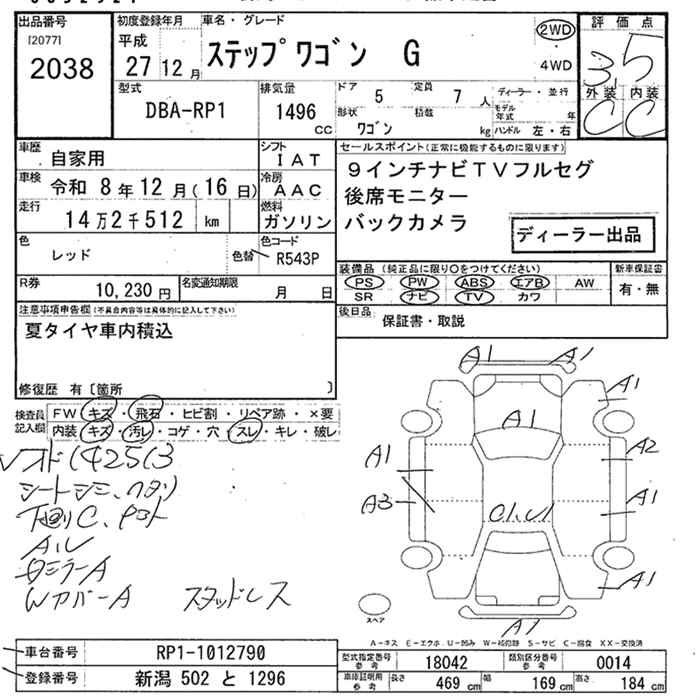 出品番号
[2077]
2038
初度登録年月
平成
27年12月
車名・グレード
ステップワゴン G
2WD
・
4WD
評価点
3.5
外装 内装
C C
型式
DBA-RP1
排気量
1496
CC
ドア 5
定員 7人
形状
ワゴン
積載
kg
ディーラー・並行
モデル年式 年
ハンドル 左・右
車歴
自家用
シフト
IAT
車検
令和 8年12月(16日)
冷房
AAC
走行
14万2千512 km
燃料
ガソリン
セールスポイント(正常に機能するものに限ります)
9インチナビTVフルセグ
後席モニター
バックカメラ
ディーラー出品
色
レッド
色替
色コード
R543P
装備品(純正品に限り○をつけてください)
PS PW ABS エアB AW
SR ナビ TV カワ
新車保証書
有・無
R券
10,230円
名変通知期限
月 日
後日品
保証書・取説
注意事項申告欄(不具合内容等は具体的に記入して下さい)
夏タイヤ車内積込
修復歴 有〔箇所 〕
検査員記入欄
FW キズ・飛石・ヒビ割・リペア跡・×要
内装 キズ・汚レ・コゲ・穴・スレ・キレ・破レ
142513
シートシミ、ヘタリ
下廻りC、
Aル
ミラーA
WカバーA スタッドレス
A1 A1
A1
A1
A1
A2
A3
A1
A1
A1
スペア
A-キズ E-エクボ U-凹み W-補修跡 S-サビ C-腐食 XX-交換済
車台番号
RP1-1012790
型式指定番号 参考
18042
類別区分番号 参考
0014
登録番号
新潟 502 と 1296
車庫証明用 参考
長さ 469cm
幅 169cm
高さ 184cm